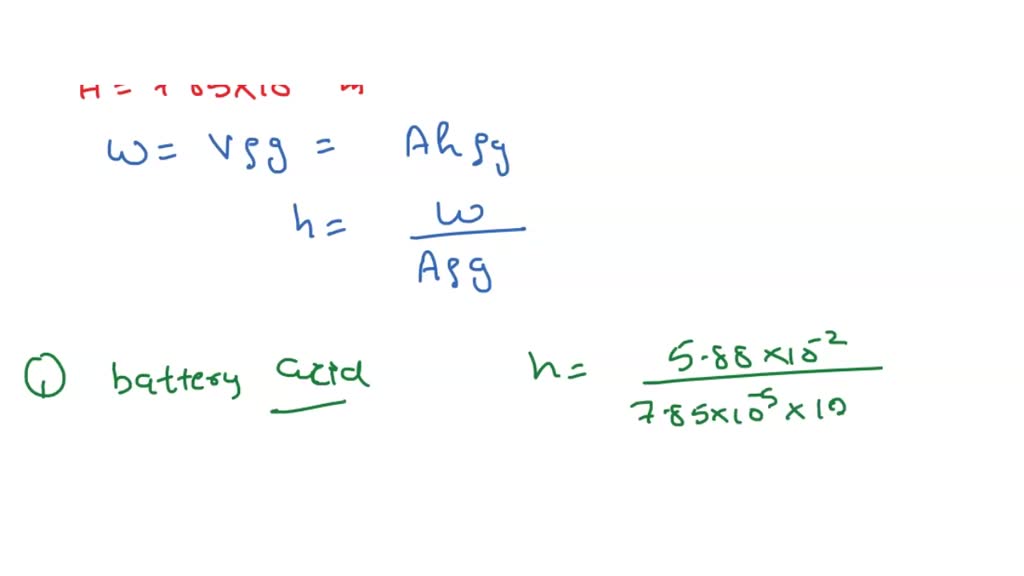 ω = Vρg = Ahρg
h = ω / Aρg
① battery acid h = 5.88 × 10⁻² / 7.85×10⁻⁵ × 10